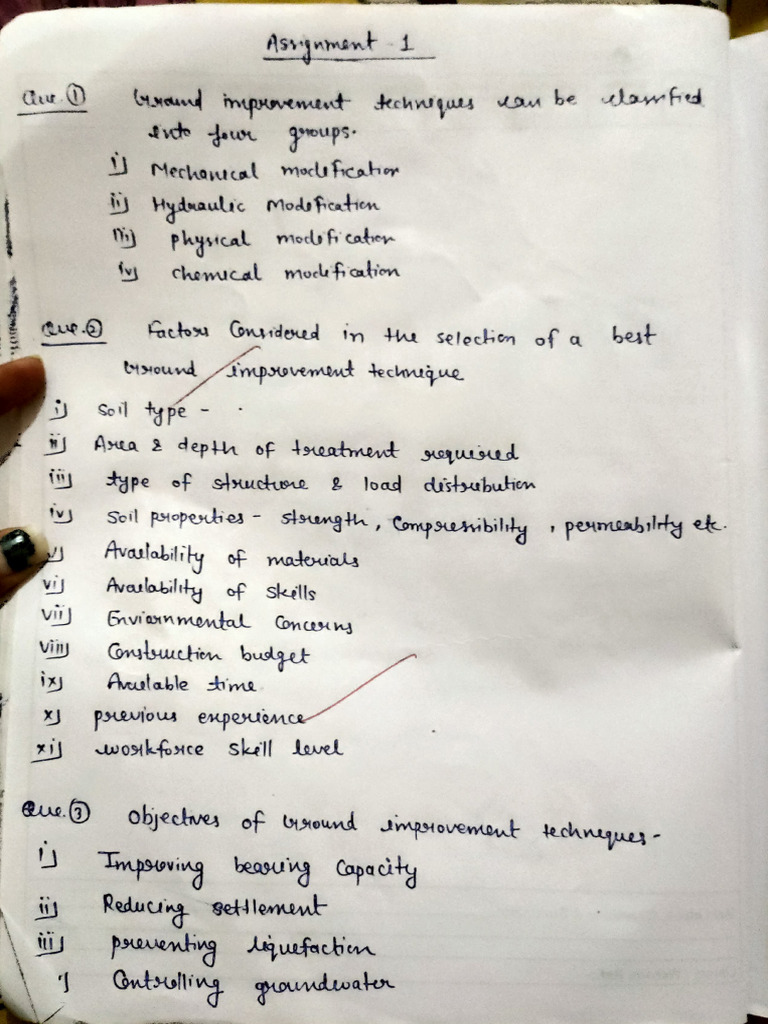 Assignment - 1
Que. ① Ground improvement techniques can be classified
into four groups.
i) Mechanical modefication
ii) Hydraulic Modefication
iii) physical modefication
iv) chemical modefication
Que. ② Factors Considered in the selection of a best
Ground improvement technique
i) Soil type -
ii) Area & depth of treatment required
iii) type of structure & load distribution
iv) Soil properties - strength, Compressibility, permeability etc.
v) Availability of materials
vi) Availability of skills
vii) Enviornmental Concerns
viii) Construction budget
ix) Available time
x) previous experience
xi) workforce skill level
Que. ③ Objectives of Ground improvement techniques -
i) Improving bearing Capacity
ii) Reducing settlement
iii) preventing liquefaction
Controlling groundwater